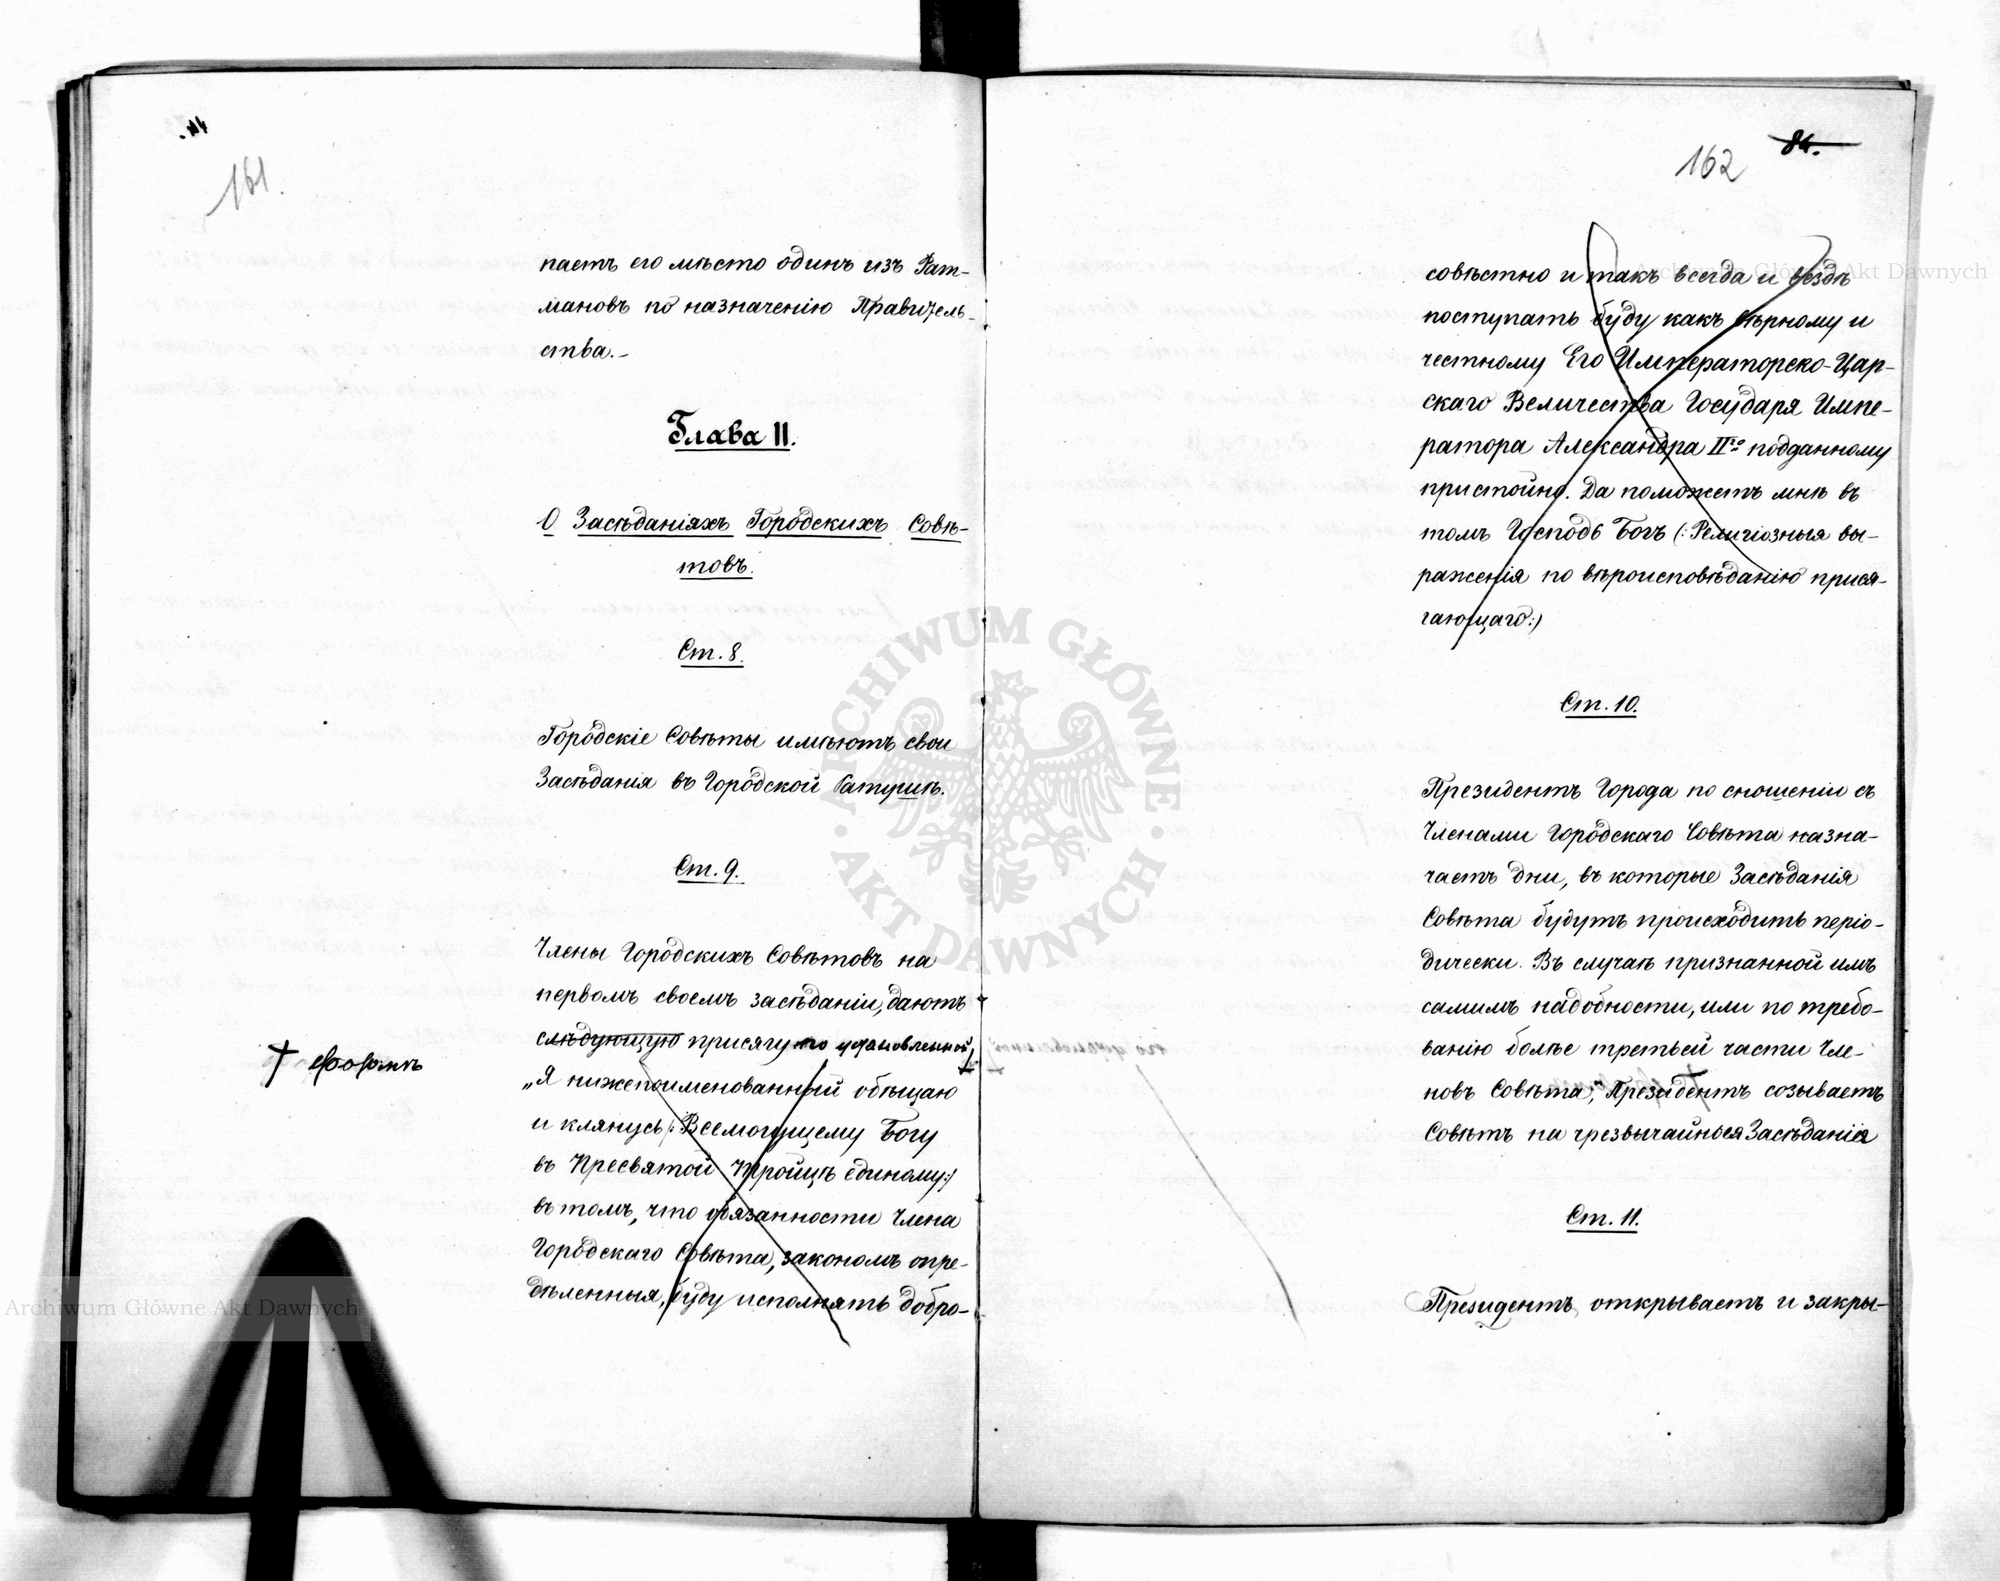 161.
паетъ его мѣсто одинъ изъ Рат-
мановъ по назначенію Правитель-
ства.-
Глава II.
О Засѣданіяхъ Городскихъ Совѣ-
товъ.
Ст. 8.
Городскіе Совѣты имѣютъ свои
Засѣданія въ Городской Ратушѣ.
Ст. 9.
Члены Городскихъ Совѣтовъ на
первомъ своемъ засѣданіи, даютъ
слѣдующую присягу по установленной
формѣ
„Я нижепоименованный обѣщаю
и клянусь (: Всемогущему Богу
въ Пресвятой Тройцѣ единому:)
въ томъ, что обязанности Члена
Городскаго Совѣта, закономъ опре-
дѣленныя, буду исполнять добро-
162 84.
совѣстно и такъ всегда и вездѣ
поступать буду какъ вѣрному и
честному Его Императорско-Цар-
скаго Величества Государя Импе-
ратора Александра IIго подданному
пристойно. Да поможетъ мнѣ въ
томъ Господь Богъ (: Религіозныя вы-
раженія по вѣроисповѣданію прися-
гающаго:)
Ст. 10.
Президентъ Города по сношеніи съ
Членами Городскаго Совѣта назна-
чаетъ дни, въ которые Засѣданія
Совѣта будутъ происходить періо-
дически. Въ случаѣ признанной имъ
самимъ надобности, или по требо-
ванію болѣе третьей части Чле-
новъ Совѣта, Президентъ созываетъ
Совѣтъ на чрезвычайныя Засѣданія
Ст. 11.
Президентъ открываетъ и закры-
ARCHIWUM GŁÓWNE AKT DAWNYCH
Archiwum Główne Akt Dawnych
Archiwum Główne Akt Dawnych